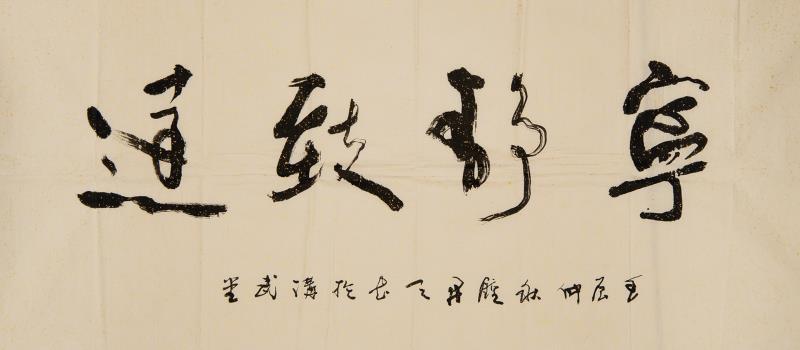 寧靜致遠
壬辰仲秋書於講武堂